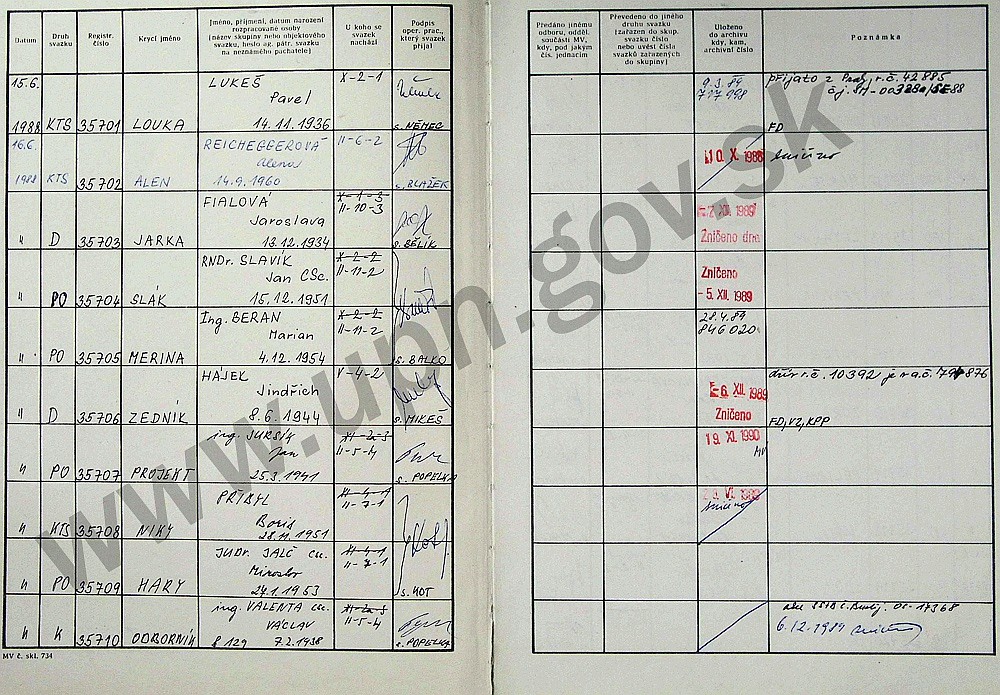 Datum
Druh svazku
Registr. číslo
Krycí jméno
Jméno, příjmení, datum narození
rozpracované osoby
(název skupiny nebo objektového
svazku, heslo ag. pátr. svazku
na neznámého pachatele)
U koho se
svazek
nachází
Podpis
oper. prac.,
který svazek
přijal
Předáno jinému
odboru, odděl.
součásti MV,
kdy, pod jakým
čís. jednacím
Převedeno do jiného
druhu svazku
(zařazen do skup.
svazku číslo
nebo uvést čísla
svazků zařazených
do skupiny)
Uloženo
do archivu
kdy, kam,
archivní číslo
Poznámka
15.6. LUKEŠ X-2-1 9.3.89 přijato z r.č. 42885
Pavel 717998
1988 KTS 35701 LOUKA 14.11.1936 s. NĚMEC FD
16.6. REICHEGGEROVÁ II-6-2 10. X. 1988 zničeno
Alena
1988 KTS 35702 ALEN 14.9.1960 s. BLAŽEK
FIALOVÁ X-1-3 -2. XII. 1989
Jaroslava II-10-3 Zničeno dne
" D 35703 JARKA 13.12.1934 s. BĚLÍK
RNDr. SLAVÍK X-2-2 Zničeno
Jan CSc. II-11-2 -5. XII. 1989
" PO 35704 SLÁK 15.12.1951
Ing. BERAN X-2-2 28.4.89
Marian II-11-2 846020
" PO 35705 MERINA 4.12.1954 s. BALKO
HÁJEK V-4-2 -6. XII. 1989 dřív r.č. 10392
Jindřich Zničeno
" D 35706 ZEDNÍK 8.6.1944 s. MIKEŠ FD, VZ, KPP
ing. JURSÍK XI-2a-3 19. XI. 1990
Jan II-5-4 MV
" PO 35707 PROJEKT 25.3.1941 s. POPELKA
PŘIBYL XI-4-1
Boris II-7-1 zničeno
" KTS 35708 NIKY 28.11.1951
JUDr. JALČ CSc. XI-4-1
Miroslav II-7-1
" PO 35709 HARY 24.1.1953 s. KOT
ing. VALENTA CSc. XI-2a-3
VÁCLAV II-5-4 6.12.1989
" K 35710 ODBORNÍK 8129 7.2.1938 s. POPELKA
MV č. skl. 734
www.upn.gov.sk